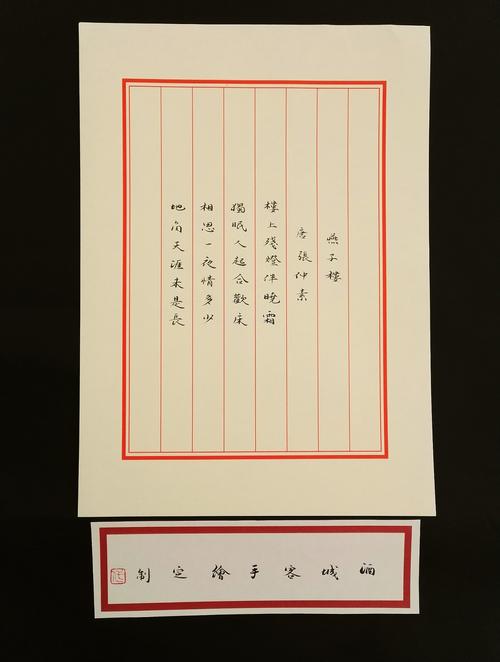 燕子樓
唐張仲素
樓上殘燈伴曉霜
獨眠人起合歡床
相思一夜情多少
地角天涯未是長
酒城客手繪定制